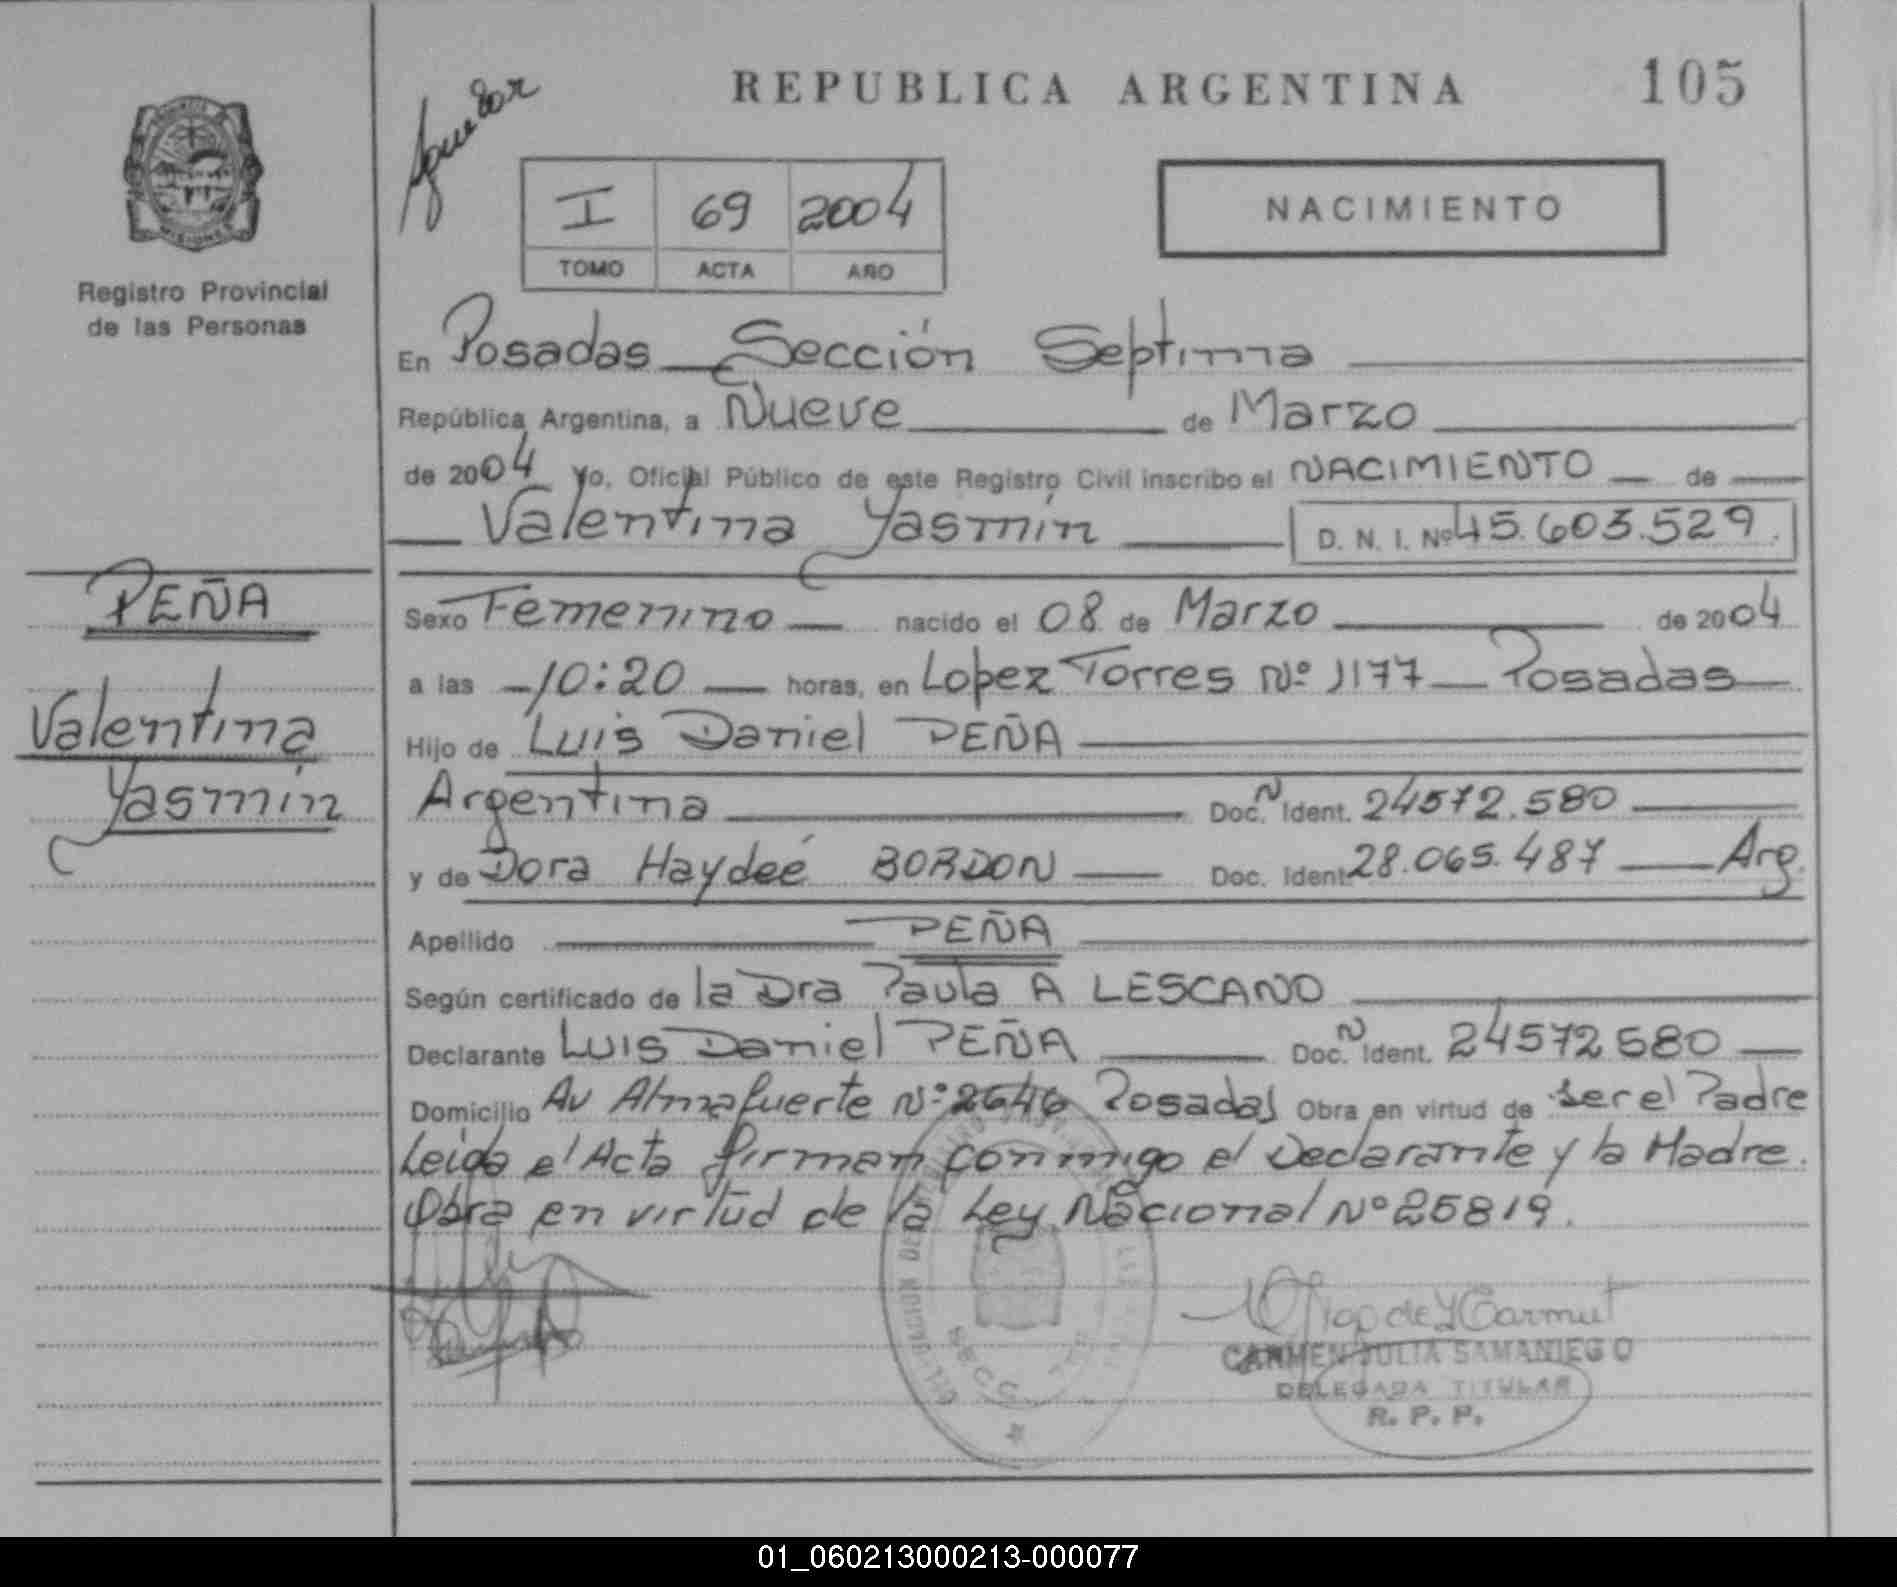 REPUBLICA ARGENTINA
105
I 69 2004
TOMO ACTA AÑO
NACIMIENTO
MISIONES
Registro Provincial
de las Personas
En Posadas Sección Septima
República Argentina, a Nueve de Marzo
de 2004 Yo, Oficial Público de este Registro Civil inscribo el NACIMIENTO de
Valentina Yasmín D. N. I. Nº 45.603.529.
PEÑA
Valentina
Yasmín
Sexo Femenino nacido el 08 de Marzo de 2004
a las 10:20 horas, en Lopez Torres Nº 1177 Posadas
Hijo de Luis Daniel PEÑA
Argentina Doc. N Ident. 24572.580
y de Dora Haydeé BORDON Doc. Ident. 28.065.487 Arg.
Apellido PEÑA
Según certificado de la Dra Paula A LESCANO
Declarante Luis Daniel PEÑA Doc. N Ident. 24572580
Domicilio Av Almafuerte Nº 2646 Posadas Obra en virtud de ser el Padre
Leida el Acta firman conmigo el Declarante y la Madre.
Obra en virtud de la Ley Nacional Nº 25819.
CARMEN JULIA SAMANIEGO
DELEGADA TITULAR
R. P. P.
01_060213000213-000077